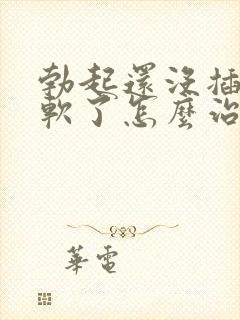 勃起還沒插
軟了怎麼治
華電